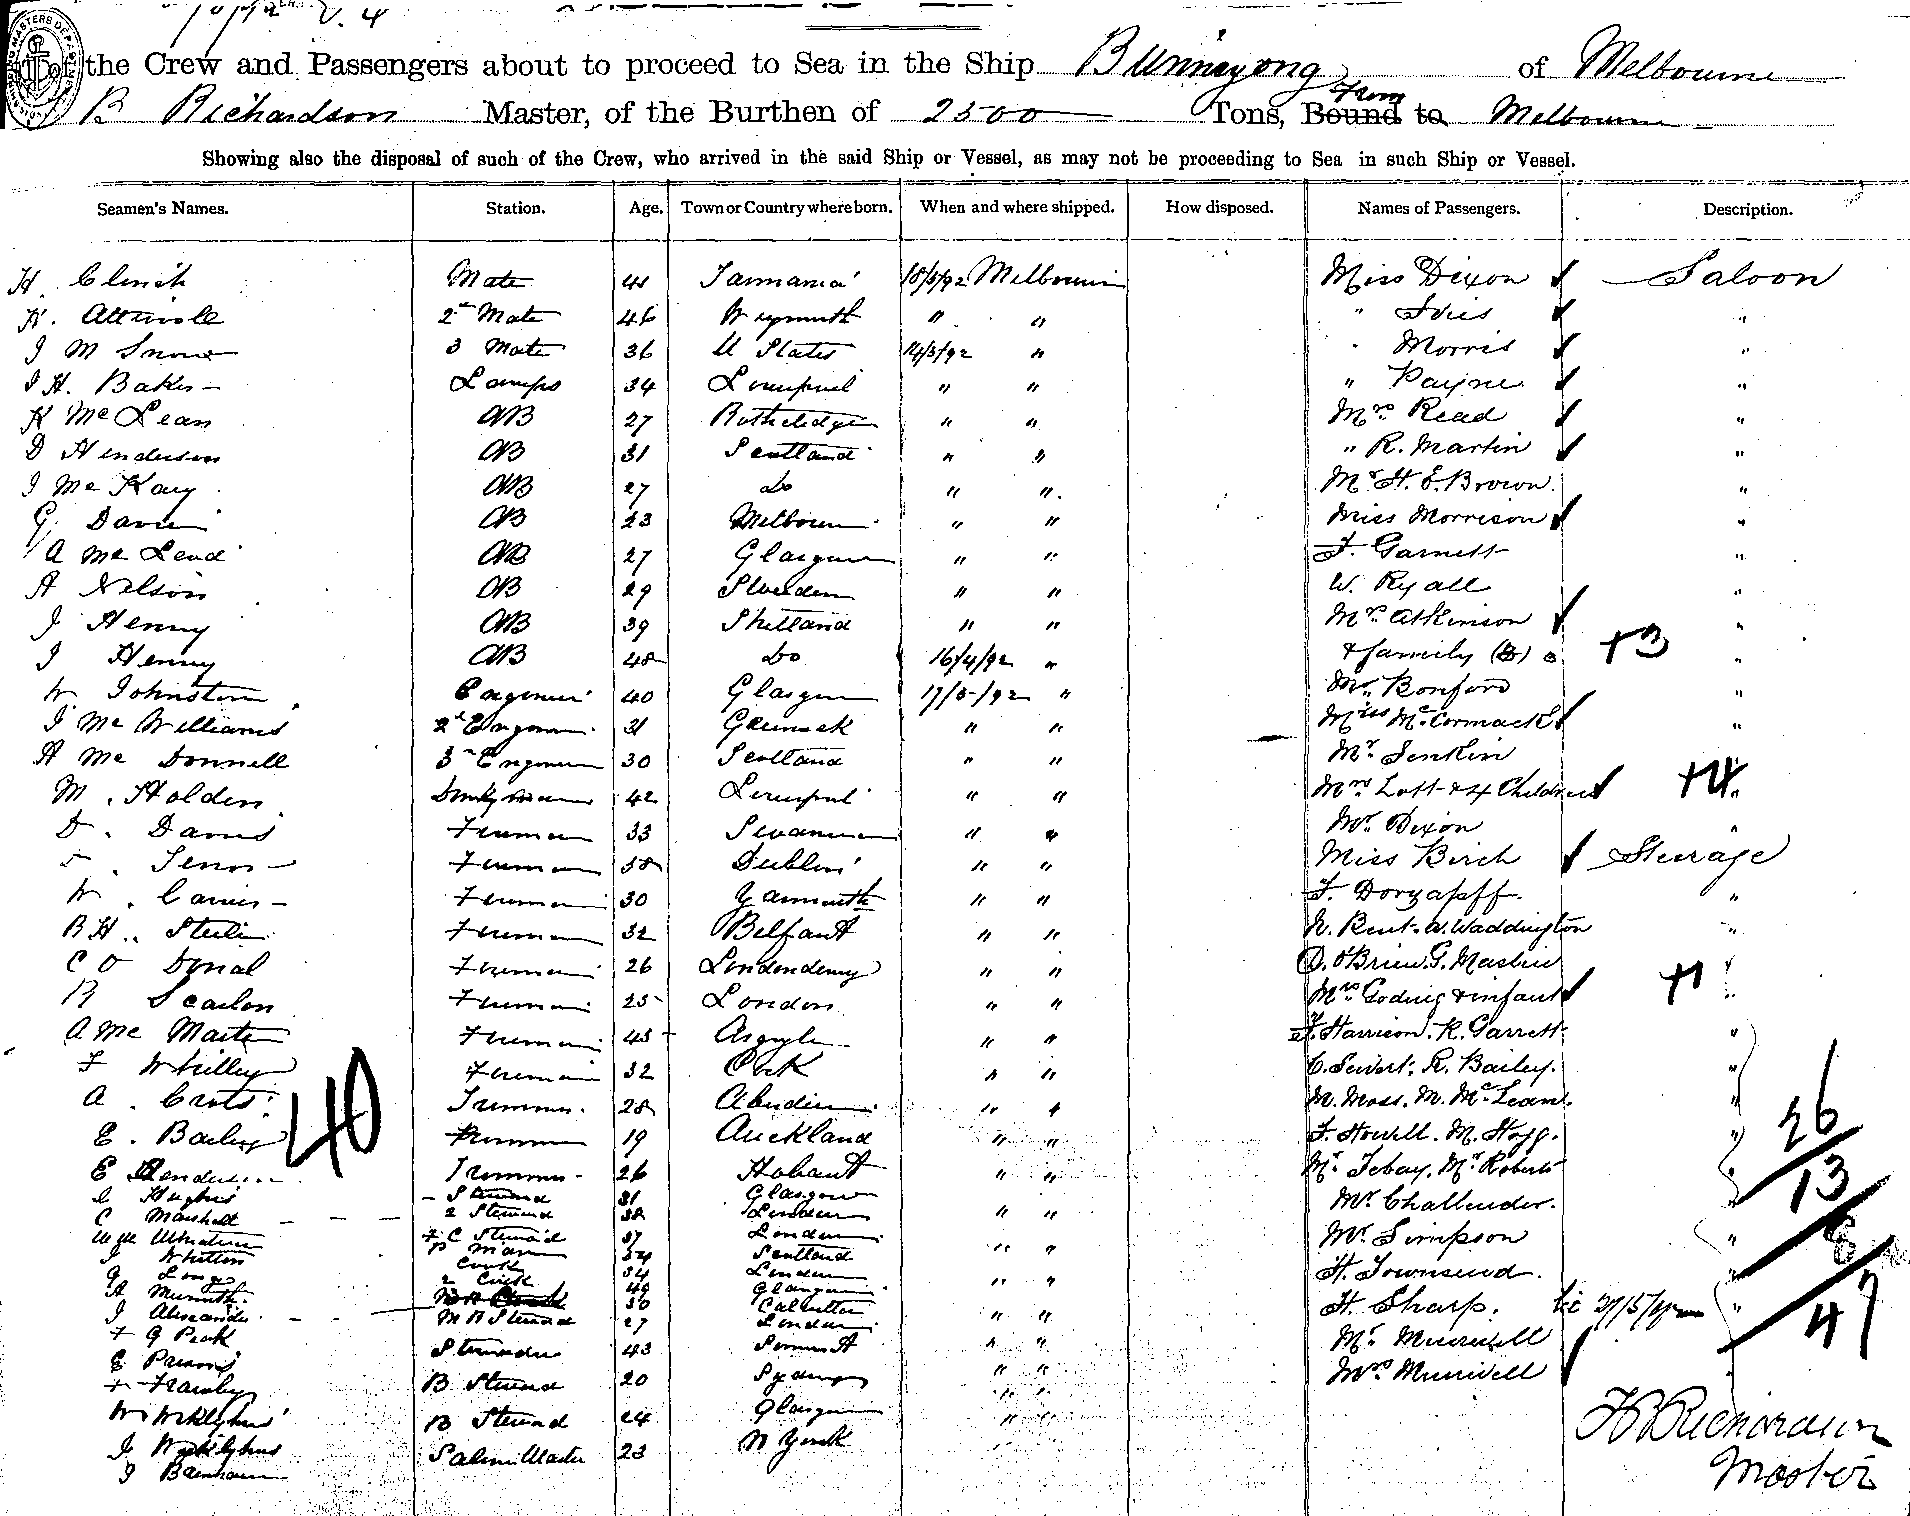 of the Crew and Passengers about to proceed to Sea in the Ship Buninyong of Melbourne
B Richardson Master, of the Burthen of 2500 Tons, Bound to from Melbourne
Showing also the disposal of such of the Crew, who arrived in the said Ship or Vessel, as may not be proceeding to Sea in such Ship or Vessel.
Seamen's Names. Station. Age. Town or Country where born. When and where shipped. How disposed. Names of Passengers. Description.
H. Clinch Mate 41 Tasmania 18/5/92 Melbourne Miss Dixon ✓ Saloon
2d Mate 46 Weymouth " " " Ivies ✓ "
J M Snow 3 Mate 36 U States 14/5/92 " " Morris ✓ "
J H. Baker Lamps 34 Liverpool " " " Payne ✓ "
K McLean AB 27 " " Mrs Read ✓ "
D Henderson AB 31 Scotland " " " R. Martin ✓ "
J McKay AB 27 Do " " Mr H. E. Brown. "
G. Davis AB 23 Melbourne " " Miss Morrison ✓ "
A McLeod AB 27 Glasgow " " F. Garnett "
A Nelson AB 29 Sweden " " W. Ryall "
J Henry AB 39 Shetland " " Mrs Atkinson ✓ "
J Henry AB 48 Do 16/4/92 " & family (3) 3 +3 "
W Johnston Engineer 40 Glasgow 17/5/92 " Mr Bonford "
J McWilliams 2d Engineer 31 Greenock " " Miss McCormack ✓ "
A McDonnell 3rd Engineer 30 Scotland " " Mr Jenkin
M. Holden Donkeyman 42 Liverpool " " Mrs Lott & 4 Children ✓ +4 "
D. Davis Fireman 33 Swansea " " Mr Dixon "
Fireman 38 Dublin " " Miss Birch ✓ Steerage
W. Fireman 30 Yarmouth " " F. Dorgapff. "
R H. Fireman 32 Belfast " " N. Bent. W. Waddington "
C O Donal Fireman 26 Londonderry " " D. O'Brien. G. Maslin "
R Scanlon Fireman 25 London " " Mrs Goding & infant ✓ +1 "
A Mc Master Fireman 45 Argyle " " F. Harrison. K. Garrett "
F Whilley Fireman 32 Cork " " C. Sewert. R. Bailey. "
A. Trimmer 28 Aberdeen " " M. Moss. M. McLean. "
E. Bailey 40 Trimmer 19 Auckland " " F. Howell. M. Hogg. " 26
E Henderson Trimmer 26 Hobart " " Mr Tebay. Mr Roberts 13
J Hughes Steward 31 Glasgow Mr Challender.
C Marshall 2 Steward 38 London " " Mr Simpson " 8
F C Steward 37 London
J Whitton P man 54 Scotland " "
G Long Cook 34 London H. Townsend. "
A 2 Cook 49 Glasgow " "
J Alexander 30 Calcutta " " H. Sharp. 47
F G Peak M R Steward 27 London
E Parsons Stewardess 43 " " Mr Murivell
B. Steward 20 Sydney " " Mrs Murivell ✓
B Steward 24 Glasgow " "
J Saloon Waiter 23 N York
J
H B Richardson
Master